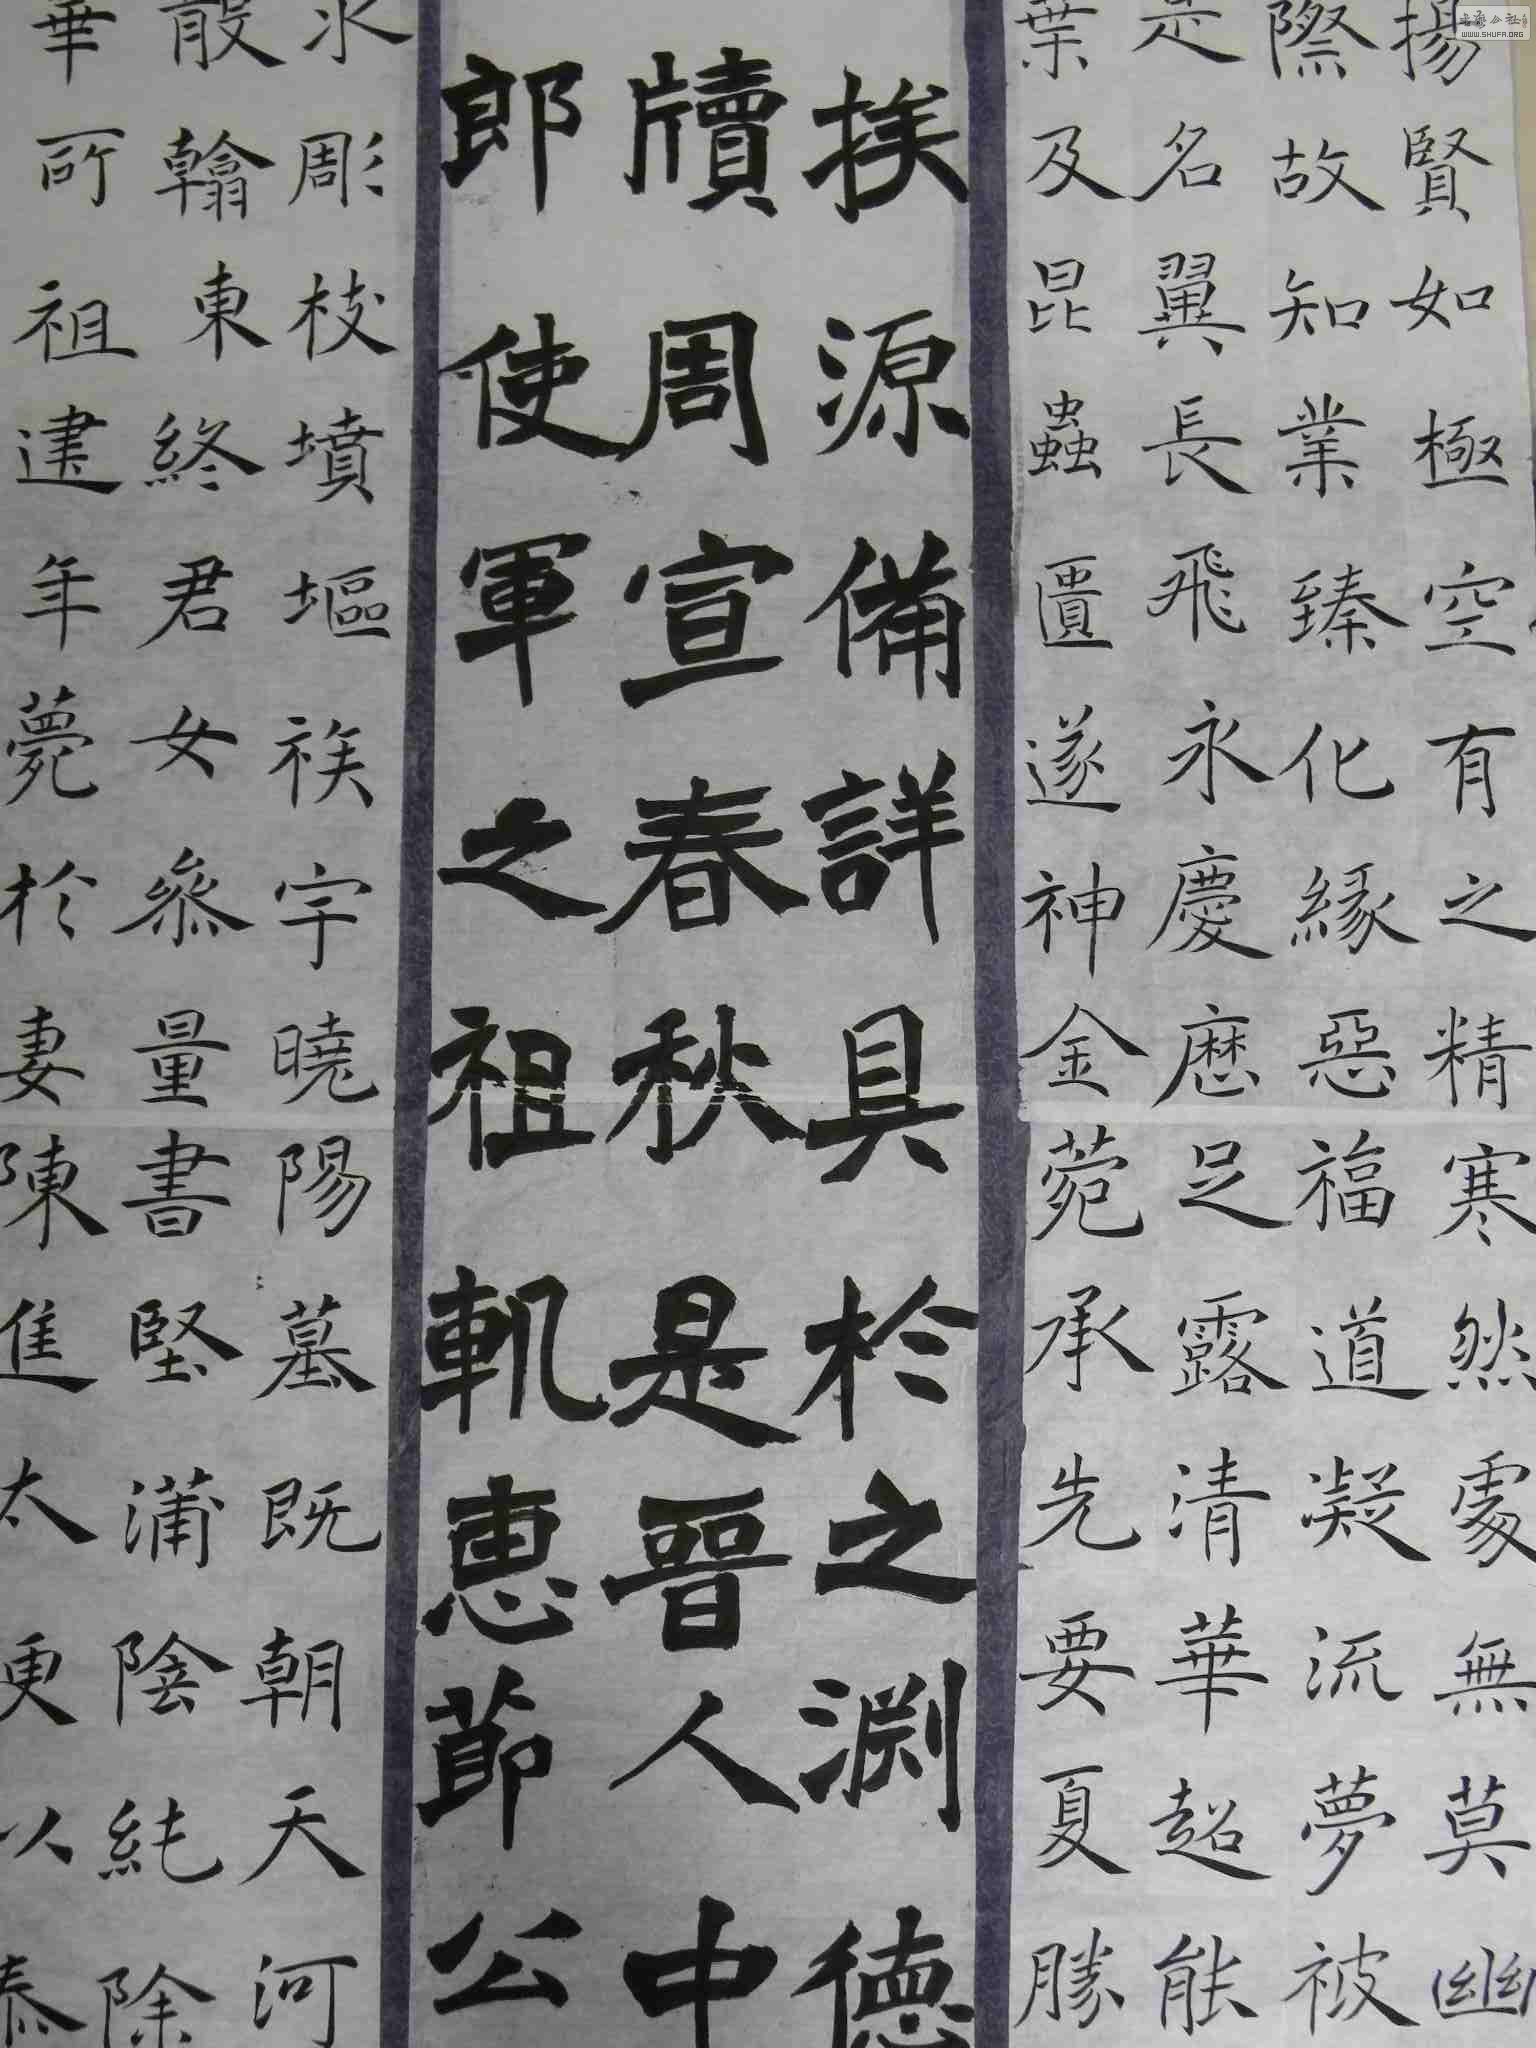 揚賢如極空有之精寒然處無莫幽
際故知業臻化緣惡福道凝流夢被
是名翼長飛永慶歷足露清華超能
葉及昆蟲匱遂神金菀承先要夏勝
挨源備詳具於之淵德
牘周宣春秋是晉人中
郎使軍之祖軌惠節公
彫枝墳塸族宇曉陽墓既朝天河
散翰東終君女參量書堅蒲陰純除
華所祖建年薨於妻陳進太更以泰
書法公社
WWW.SHUFA.ORG